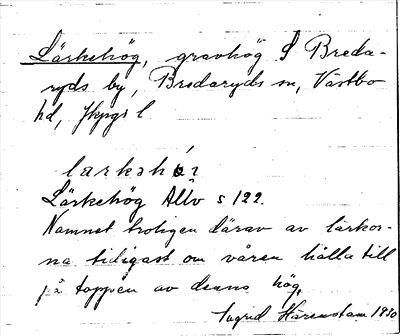 Lärkehög, gravhög S Breda-
ryds by, Bredaryds sn, Västbo
hd, Jkpgs l
Lärkehög Allv s 122.
Namnet troligen därav av lärkor-
na tidigast om våren hålla till
på toppen av denna hög
Ingrid Harenstam 1930